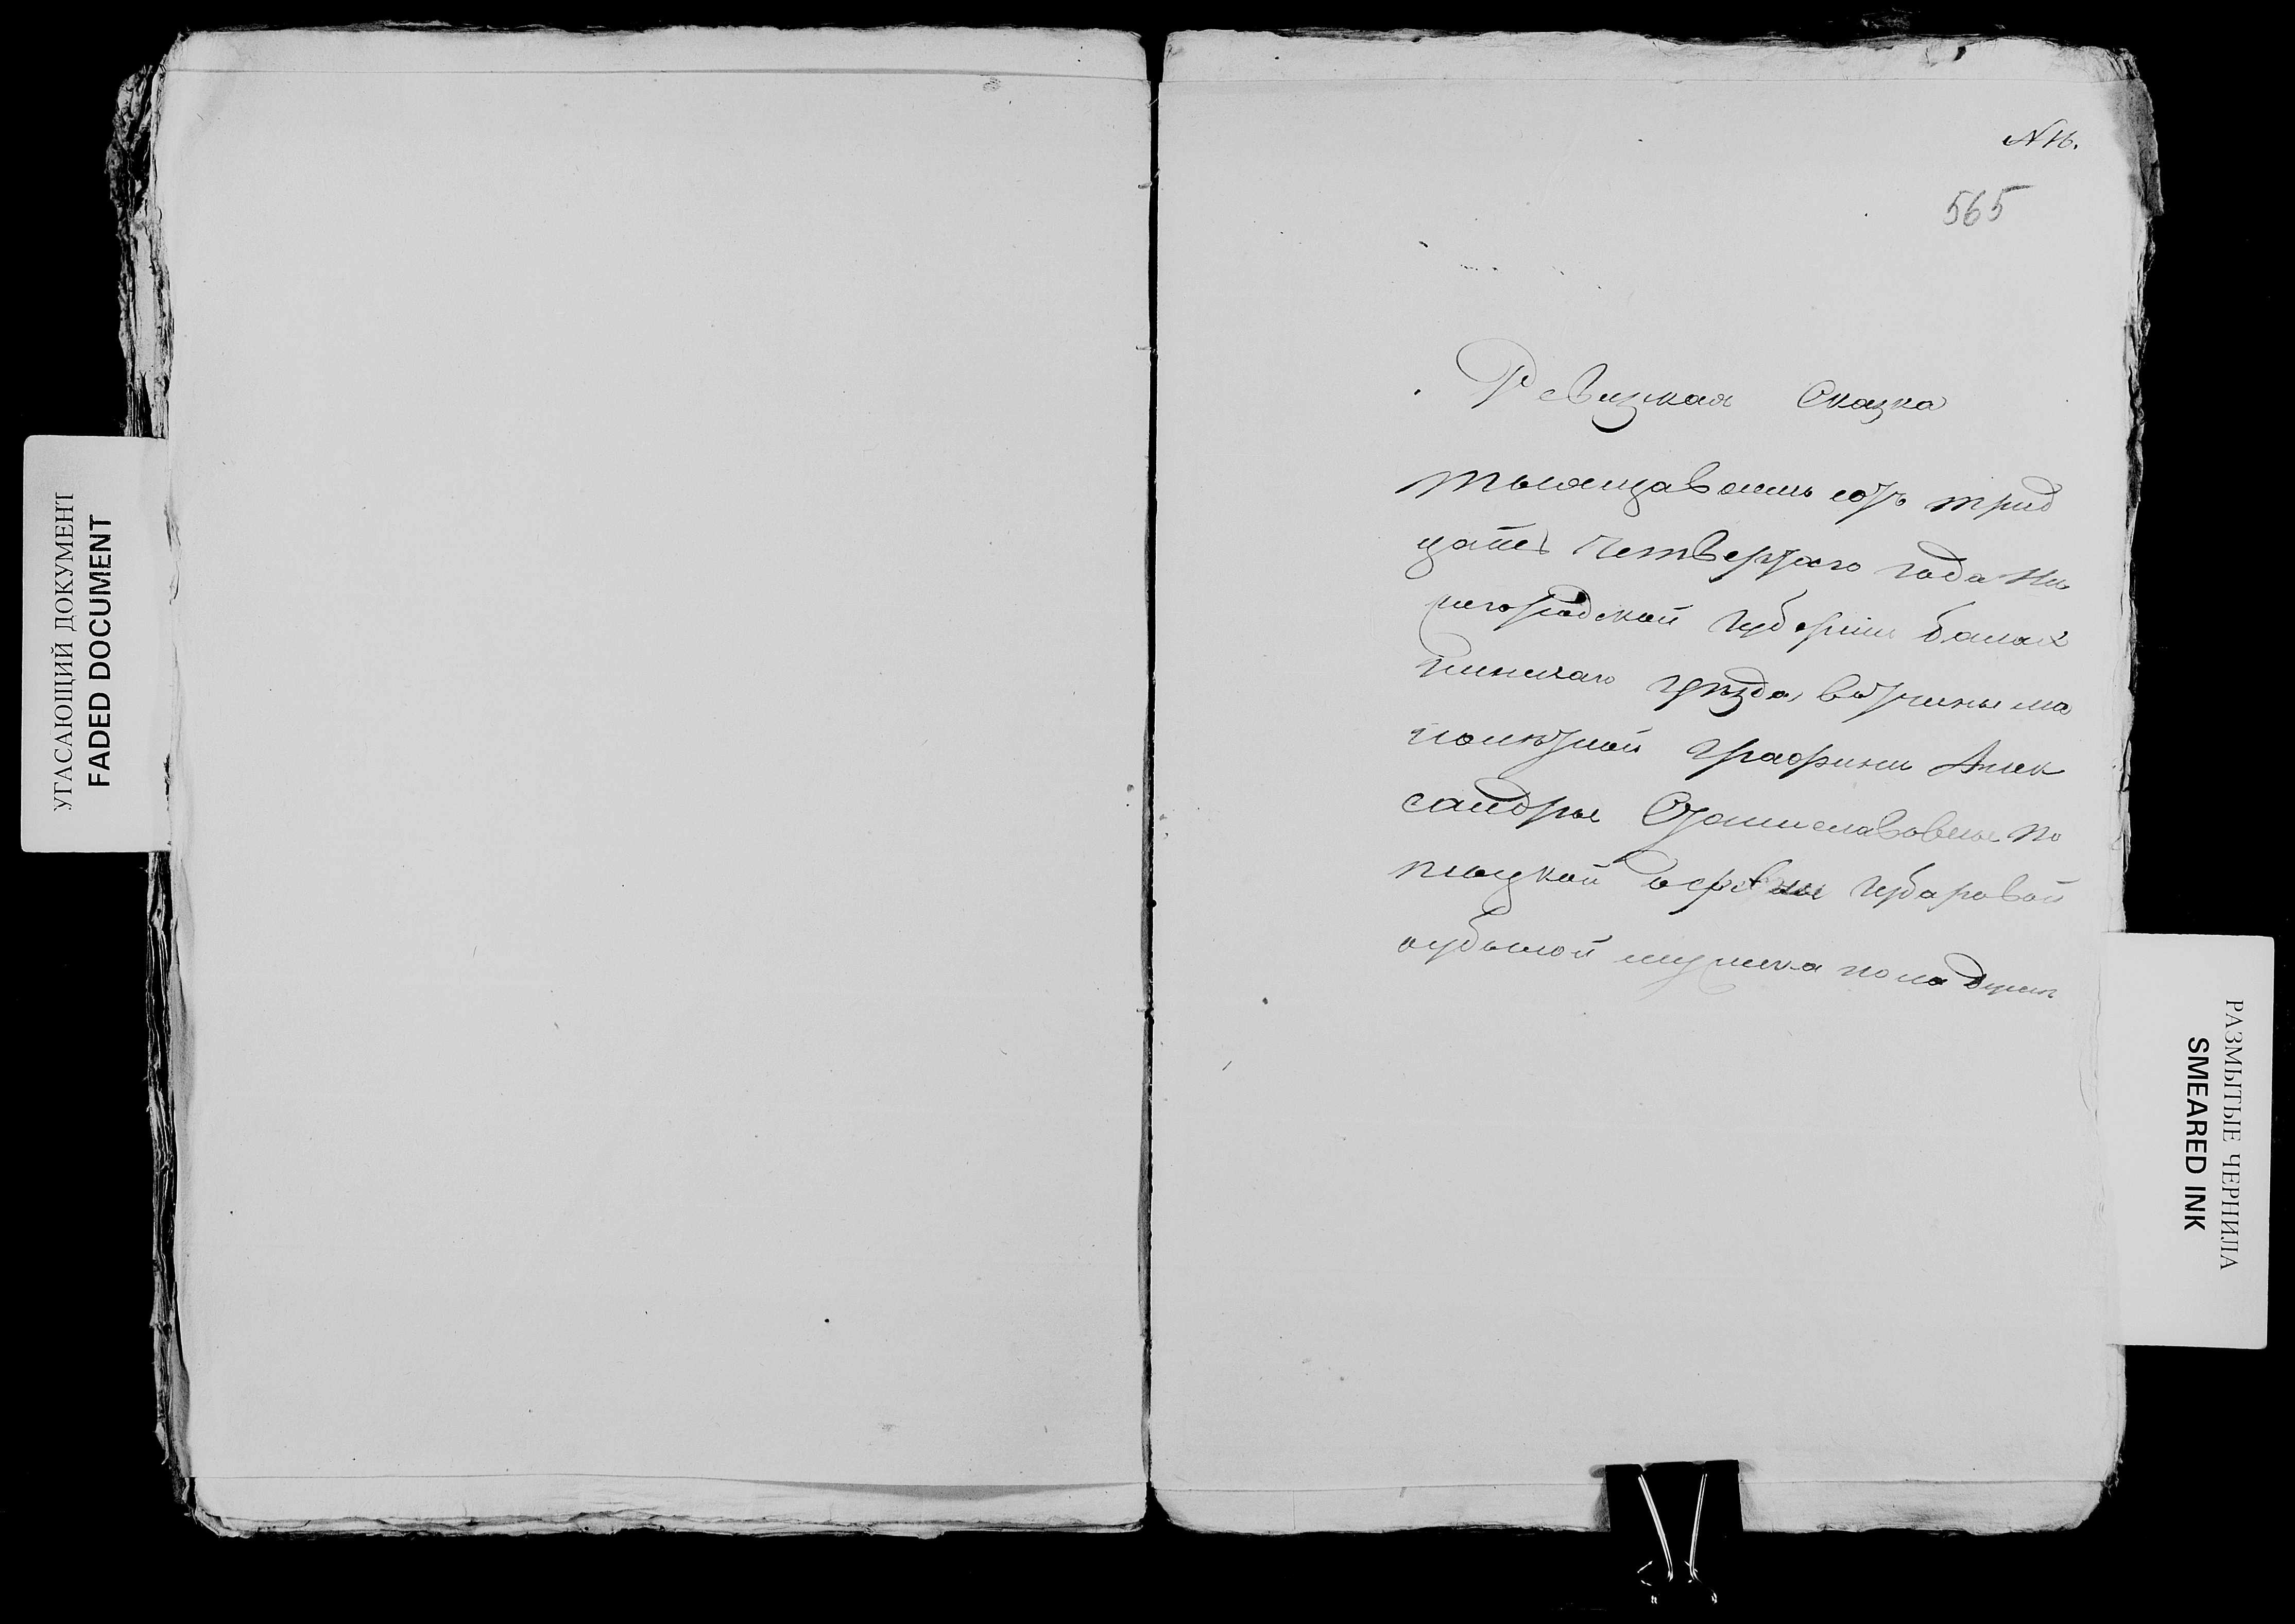 УГАСАЮЩИЙ ДОКУМЕНТ
FADED DOCUMENT
N 16.
565
Ревизкая Сказка
тысяща восемь сотъ трид
цать Четвертаго года Ни
жегородской губернии балах
нинскаго уезда, вотчины ма
лолетной графини Алек
сандры Станиславовны По
тоцкой деревни Губаровой
о убылой мужска пола душъ
РАЗМЫТЫЕ ЧЕРНИЛА
SMEARED INK